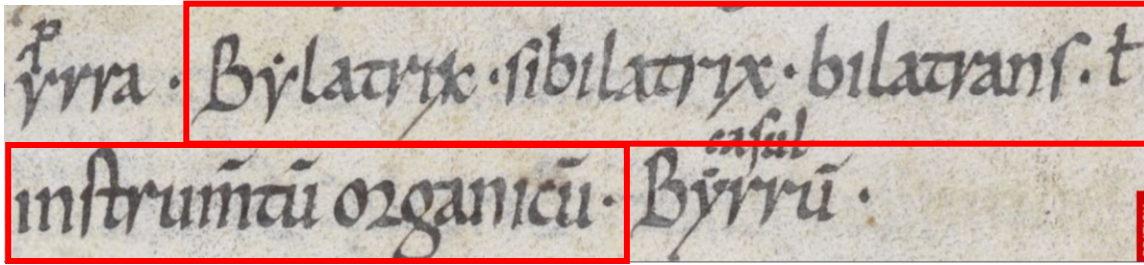 ẏrra · Bẏlatrix · sibilatrix · bilatrans · ł
instrum̄tū organicū · Bẏrrū ·
casul